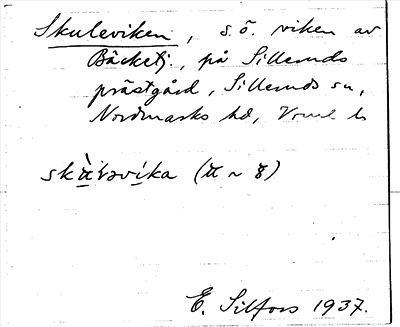 Skuleviken, s.ö. viken av
Bäcketj., på Silleruds
prästgård, Silleruds sn,
Nordmarks hd, Vrml l.
(u ~ 8)
E. Silfors 1937.